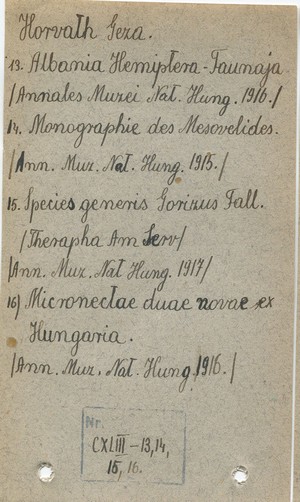 Horváth Geza.
13. Albania Hemiptera-Faunája
/Annales Muzei Nat. Hung. 1916./
14. Monographie des Mesovelides.
/Ann. Muz. Nat. Hung. 1915./
15. Species generis Gorizus Fall.
/Therapha Am Serv/
/Ann. Muz. Nat Hung. 1917/
16) Micronectae duae novae ex
Hungaria.
/Ann. Muz. Nat. Hung. 1916./
Nr.
CXLIII-13,14,
15, 16.